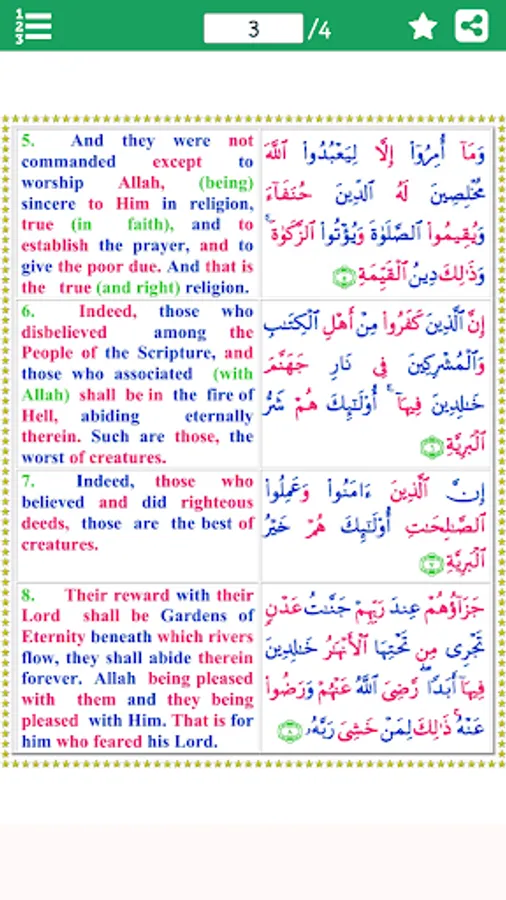 1
2
3
3 /4
5. And they were not
commanded except to
worship Allah, (being)
sincere to Him in religion,
true (in faith), and to
establish the prayer, and to
give the poor due. And that is
the true (and right) religion.
وَمَآ أُمِرُوٓا۟ إِلَّا لِيَعْبُدُوا۟ ٱللَّهَ
مُخْلِصِينَ لَهُ ٱلدِّينَ حُنَفَآءَ
وَيُقِيمُوا۟ ٱلصَّلَوٰةَ وَيُؤْتُوا۟ ٱلزَّكَوٰةَ ۚ
وَذَٰلِكَ دِينُ ٱلْقَيِّمَةِ ٥
6. Indeed, those who
disbelieved among the
People of the Scripture, and
those who associated (with
Allah) shall be in the fire of
Hell, abiding eternally
therein. Such are those, the
worst of creatures.
إِنَّ ٱلَّذِينَ كَفَرُوا۟ مِنْ أَهْلِ ٱلْكِتَٰبِ
وَٱلْمُشْرِكِينَ فِى نَارِ جَهَنَّمَ
خَٰلِدِينَ فِيهَآ ۚ أُو۟لَٰٓئِكَ هُمْ شَرُّ
ٱلْبَرِيَّةِ ٦
7. Indeed, those who
believed and did righteous
deeds, those are the best of
creatures.
إِنَّ ٱلَّذِينَ ءَامَنُوا۟ وَعَمِلُوا۟
ٱلصَّٰلِحَٰتِ أُو۟لَٰٓئِكَ هُمْ خَيْرُ
ٱلْبَرِيَّةِ ٧
8. Their reward with their
Lord shall be Gardens of
Eternity beneath which rivers
flow, they shall abide therein
forever. Allah being pleased
with them and they being
pleased with Him. That is for
him who feared his Lord.
جَزَآؤُهُمْ عِندَ رَبِّهِمْ جَنَّٰتُ عَدْنٍ
تَجْرِى مِن تَحْتِهَا ٱلْأَنْهَٰرُ خَٰلِدِينَ
فِيهَآ أَبَدًا ۖ رَّضِىَ ٱللَّهُ عَنْهُمْ وَرَضُوا۟
عَنْهُ ۚ ذَٰلِكَ لِمَنْ خَشِىَ رَبَّهُۥ ٨